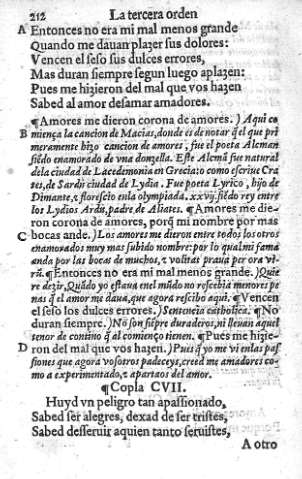 212 La tercera orden
A Entonces no era mi mal menos grande
Quando me dauan plazer sus dolores:
Vencen el seso sus dulces errores,
Mas duran siempre segun luego aplazen:
Pues me hizieron del mal que vos hazen
Sabed al amor desamar amadores.
¶Amores me dieron corona de amores. ) Aqui co
B miença la cancion de Macias, donde es de notar q̃l que pri
meramente hizo cancion de amores, fue el poeta Alcman
siẽdo enamorado de vna donzella. Este Alcmã fue natural
dela ciudad de Lacedemonia en Grecia: o como escriue Cra
tes, de Sardis ciudad de Lydia. Fue poeta Lyrico, hijo de
Dimante, z florescio enla olympiada. xxvij. siẽdo rey entre
los Lydios Ardis, padre de Aliates. ¶Amores me die-
ron corona de amores, porq̃ mi nombre por mas
C bocas ande. ) Los amores me dieron entre todos los otros
enamorados muy mas subido nombre: por lo qual mi fama
anda por las bocas de muchos, z volitat
¶Entonces no era mi mal menos grande. ) Quie
re dezir, Quãdo yo estaua enel mũdo no rescebia menores pe
nas q̃ el amor me daua, que agora rescibo aqui. ¶Vencen
el seso los dulces errores. ) Sentencia catholica. ¶No
duran siempre. ) No son siẽpre duraderos, ni lleuan aquel
tenor de contino q̃ al comienço tienen. ¶Pues me hizie-
D ron del mal que vos hazen. ) Pues q̃ yo me vi enlas pas
siones que agora vosotros padeceys, creed me amadores co-
mo a experimentado, z apartaos del amor.
¶Copla CVII.
Huyd vn peligro tan apassionado,
Sabed ser alegres, dexad de ser tristes,
Sabed desseruir aquien tanto seruistes,
A otro